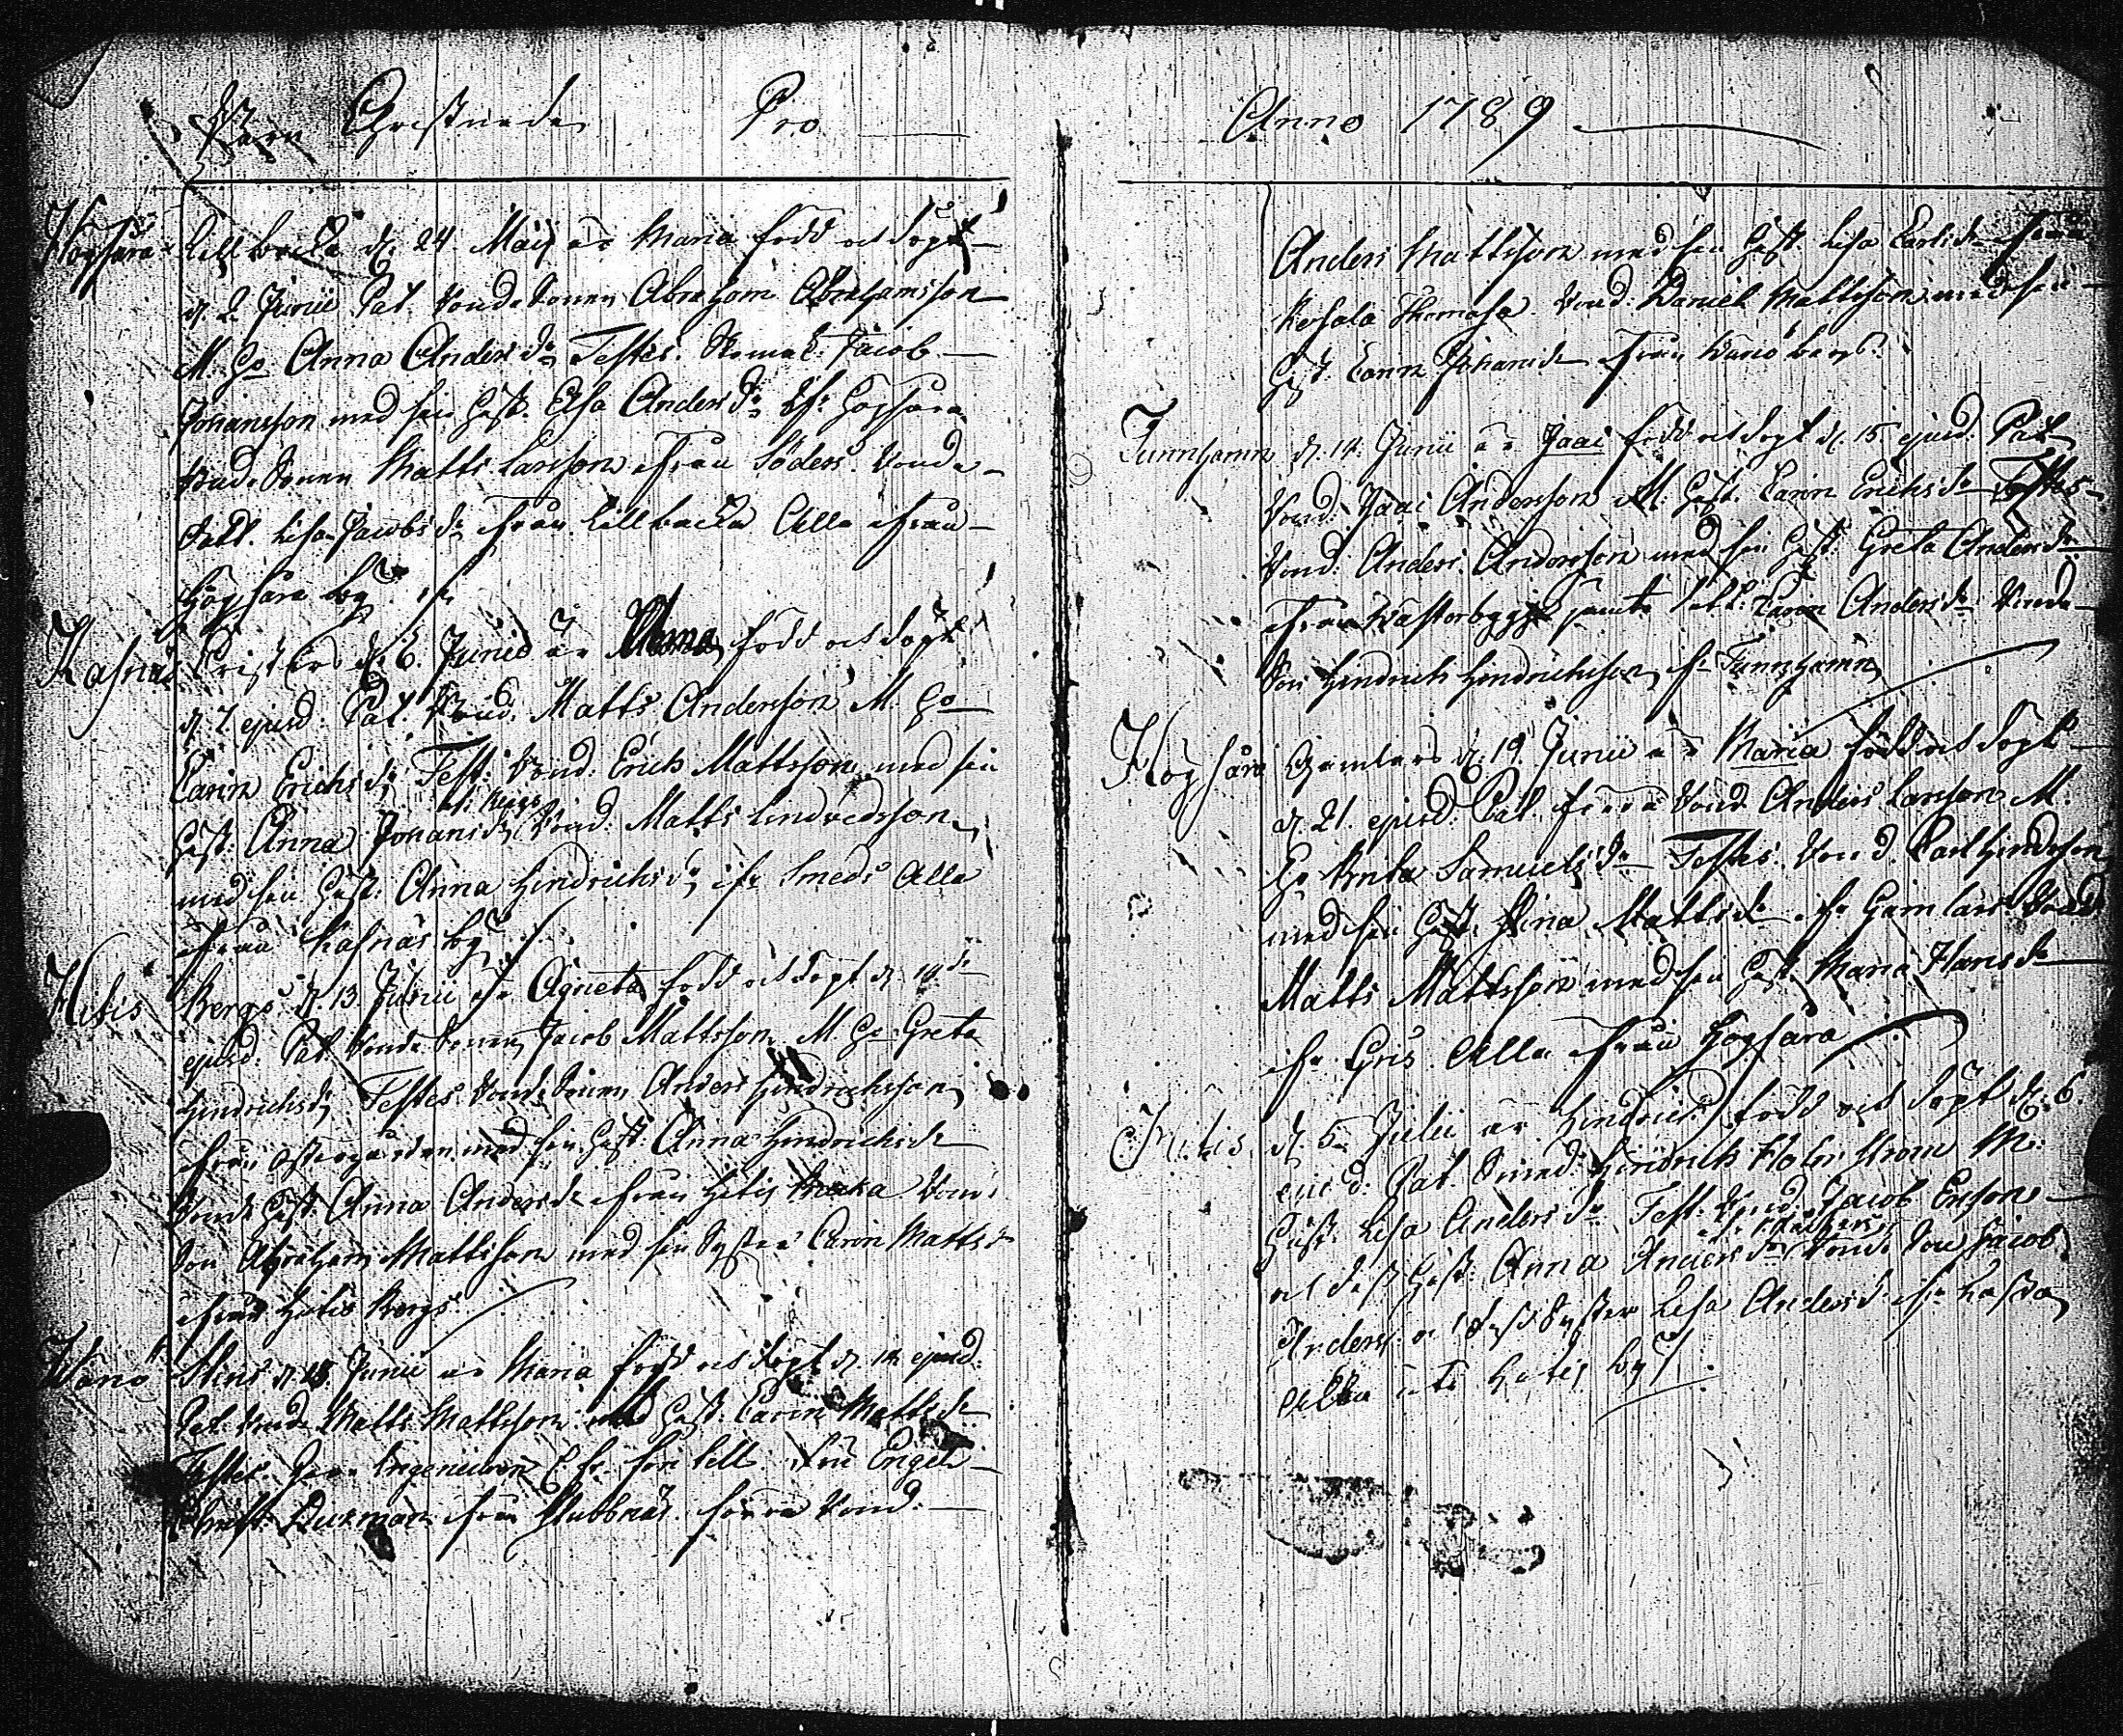 Barn Christnade Pro
Högsåra Lillbacka d. 24 Maij är Maria född och döpt
d. 2. Junii Pat. Bonde Sonen Abraham Abrahamsson
M. Ho Anna Andersdr Testes. Jacob
Johansson med sin Hust. Lisa Andersdr Högsåra
Bonde Sonen Matts Larsson från Söders. Bonde
Dott. Lisa Jacobsdr från Lillbacka Alla från
Högsåra by
Kasnäs d. 6 Junii är Anna född och döpt
d. 7. ejusd. Pat. Bond. Matts Andersson M. Ho
Carin Erichsdr Test. Bond. Erich Mattsson med sin
Hust. Anna Johansdr Bond. Matts
med sin Hust. Anna Hindrichsdr fr Smeds Alla
från Kasnäs by
Hitis Bergs d. 13 Junii är Agneta född och döpt d. 14de
ejusd. Pat. Bonde Sonen Jacob Mattsson M. Ho Greta
Hindrichsdr Testes Bonde Sonen Anders Hindrichsson
från östergården med sin Hust. Anna Hindrichsdr
Bonde Hust. Anna Andersdr från Hitis Backa Bonde
Son Abraham Mattsson med sin Syster Carin Mattsdr
från Hitis Bergs
Wänö Stens d. 13 Junii är Maria född och döpt d. 14 ejusd.
Pat. Bonde Matts Mattsson med Hust. Carin Mattsdr
Testes Ingenieuren Fru Engel
från Stubbnäs förra Bond.
Anno 1789
Anders Mattsson med sin Hust. Lisa Carlsdr från
Thomasa Bond: Daniel Mattsson med sin
Hust: Carin Johansdr från Wänö bergs
Tunnhamn d. 14. Junii är Isaac född och döpt d. 15 ejusd. Pat.
Bond. Isaac Andersson M. Hust. Carin Erichsdr Testes
Bond. Anders Andersson med sin Hust. Greta Andersdr
från samt Dott. Carin Andersdr Bonde
Son Hindrich Hindrichsson fr Tunnhamn
Högsåra Gamlars d. 19. Junii är Maria född och döpt
d. 21. ejusd. Pat. förra Bond Anders Larsson M.
Ho Brita Samuelsdr Testes Bond. Carl Hindrsson
med sin Hust. Stina Mattsdr fr Gamlars Bond
Matts Mattsson med sin Hust. Maria Hansdr
fr Gris Alla från Högsåra
Hitis d. 5 Julii är Hindrich född och döpt d. 6.
ejusd: Pat. Smed. Hindrich Holmström M.
Hust. Lisa Andersdr Test. Bond. Jacob Ersson
och dess Hust. Anna Andersdr Bonde Son Jacob
Anders och dess Syster Lisa Andersdr fr
Alla uti Hitis by